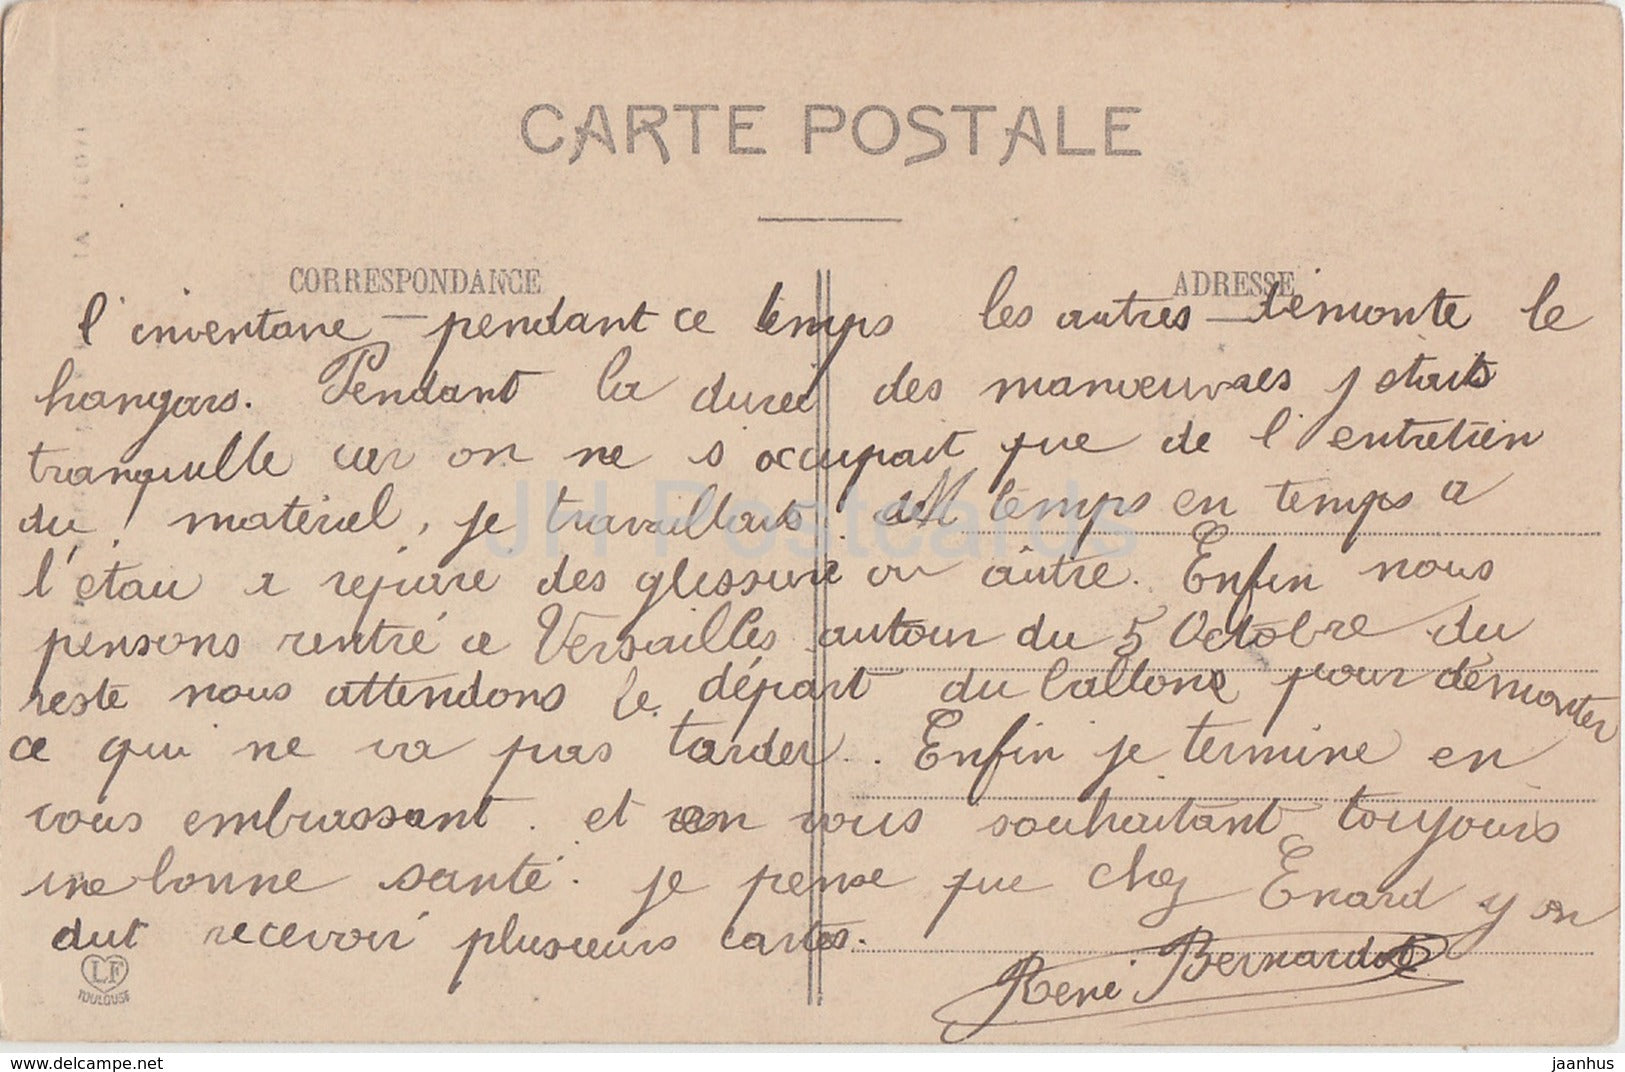 CARTE POSTALE
CORRESPONDANCE
ADRESSE
l'inventaire – pendant ce temps les autres – démonte le
hangars. Pendant la dureé des manœuvres j etais
tranquille car on ne s'occupait que de l'entretien
du matériel, je travaillais de temps en temps a
l'étau a repare des glissiere ou autre. Enfin nous
pensons rentré a Versailles autour du 5 Octobre du
reste nous attendons le départ du ballons pour démonter
ce qui ne va pas tarder. Enfin je termine en
vous embrassant. et en vous souhaitant toujours
une bonne santé. je pense que chez Enard y on
dut recevoir plusieurs cartes.
René Bernardot
LF
TOULOUSE
JH Postcards
delcampe.net
jaanhus